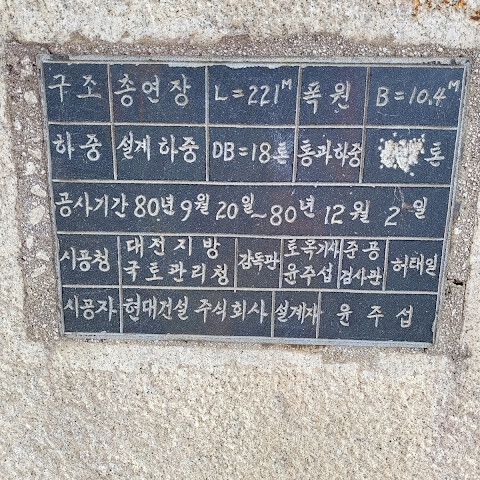 구조 총연장 L=221M 폭원 B=10.4M
하중 설계하중 DB=18톤 통과하중 톤
공사기간 80년 9월 20일~80년 12월 2일
시공청 대전지방국토관리청 감독관 토목기사 윤주섭 준공검사관 허태일
시공자 현대건설 주식회사 설계자 윤주섭